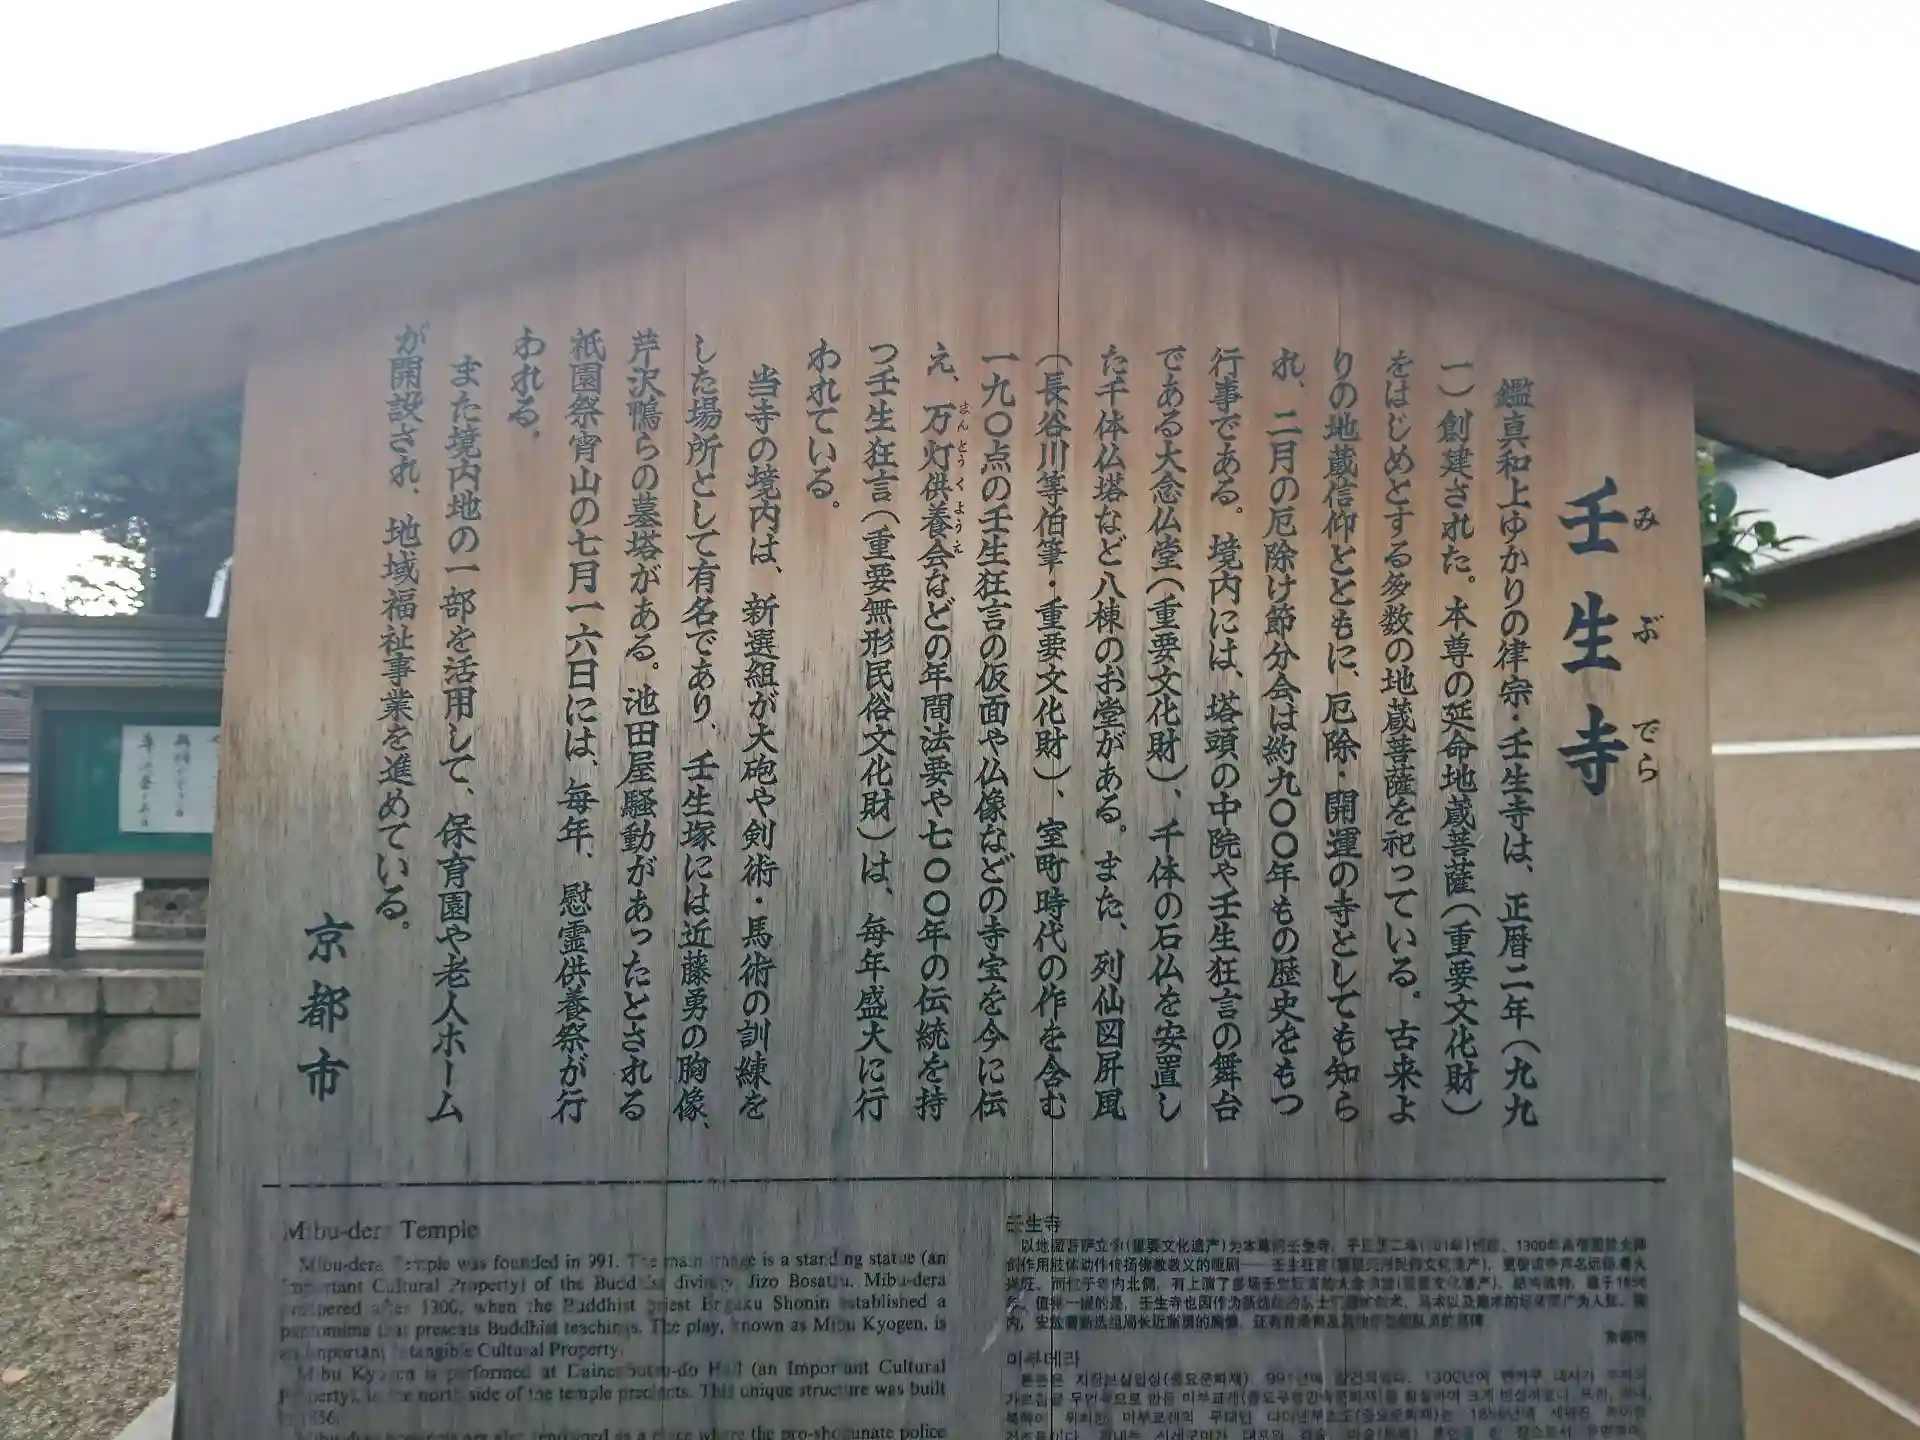 壬生寺
みぶでら
鑑真和上ゆかりの律宗・壬生寺は、正暦二年(九九
一)創建された。本尊の延命地蔵菩薩(重要文化財)
をはじめとする多数の地蔵菩薩を祀っている。古来よ
りの地蔵信仰とともに、厄除・開運の寺としても知ら
れ、二月の厄除け節分会は約九〇〇年もの歴史をもつ
行事である。境内には、塔頭の中院や壬生狂言の舞台
である大念仏堂(重要文化財)、千体の石仏を安置し
た千体仏塔など八棟のお堂がある。また、列仙図屏風
(長谷川等伯筆・重要文化財)、室町時代の作を含む
一九〇点の壬生狂言の仮面や仏像などの寺宝を今に伝
え、万灯供養会などの年間法要や七〇〇年の伝統を持
まんとうくようえ
つ壬生狂言(重要無形民俗文化財)は、毎年盛大に行
われている。
当寺の境内は、新選組が大砲や剣術・馬術の訓練を
した場所として有名であり、壬生塚には近藤勇の胸像、
芹沢鴨らの墓塔がある。池田屋騒動があったとされる
祇園祭宵山の七月一六日には、毎年、慰霊供養祭が行
われる。
また境内地の一部を活用して、保育園や老人ホーム
が開設され、地域福祉事業を進めている。
京都市
Mibu-dera Temple
Mibu-dera Temple was founded in 991. The main image is a standing statue (an
Important Cultural Property) of the Buddhist divinity, Jizo Bosatsu. Mibu-dera
prospered after 1300, when the Buddhist priest Engaku Shonin established a
pantomime that presents Buddhist teachings. The play, known as Mibu Kyogen, is
an Important Intangible Cultural Property.
Mibu Kyogen is performed at Dainenbutsu-do Hall (an Important Cultural
Property), in the north side of the temple precincts. This unique structure was built
in 1856.
are also renowned as a place where the pro-shogunate police
壬生寺
미부데라